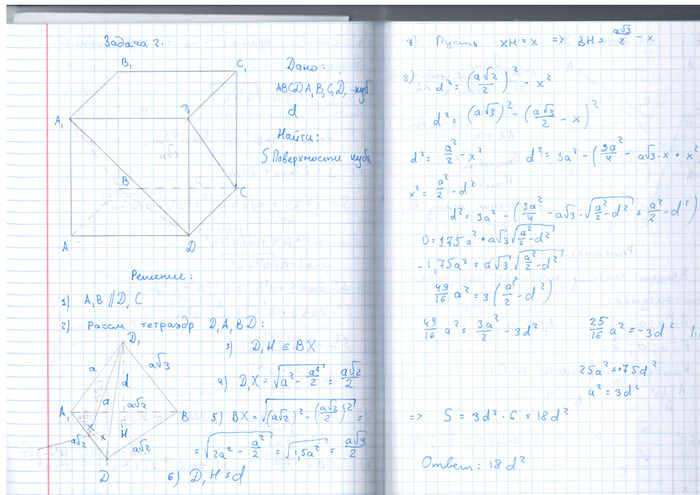 Задача 2.
B₁ C₁
A₁ D₁
B C
A D
Дано:
ABCDA₁B₁C₁D₁ - куб
d
Найти:
S поверхности куба
Решение:
1) A₁B ∥ D₁C
2) Рассм тетраэдр D₁A₁BD:
D₁
a a√3
d
a a√2
A₁ B
x H
a√2 x a√2
D
3) D₁H ∈ BX
4) D₁X = √(a² - a²/2) = a√2/2
5) BX = √((a√2)² - (a√2/2)²) =
= √(2a² - a²/2) = √(1,5a²) = a√3/2
6) D₁H = d
7) Пусть XH = x => BH = a√3/2 - x
8) d² = (a√2/2)² - x²
d² = (a√3)² - (a√3/2 - x)²
d² = a²/2 - x² d² = 3a² - (3a²/4 - a√3·x + x²
x² = a²/2 - d²
d² = 3a² - (3a²/4 - a√3·√(a²/2 - d²) + a²/2 - d²)
0 = 1,75a² + a√3√(a²/2 - d²)
-1,75a² = a√3√(a²/2 - d²)
49/16 a² = 3(a²/2 - d²)
49/16 a² = 3a²/2 - 3d² 25/16 a² = -3d²
25a² = +75d²
a² = 3d²
=> S = 3d²·6 = 18d²
Ответ: 18d²